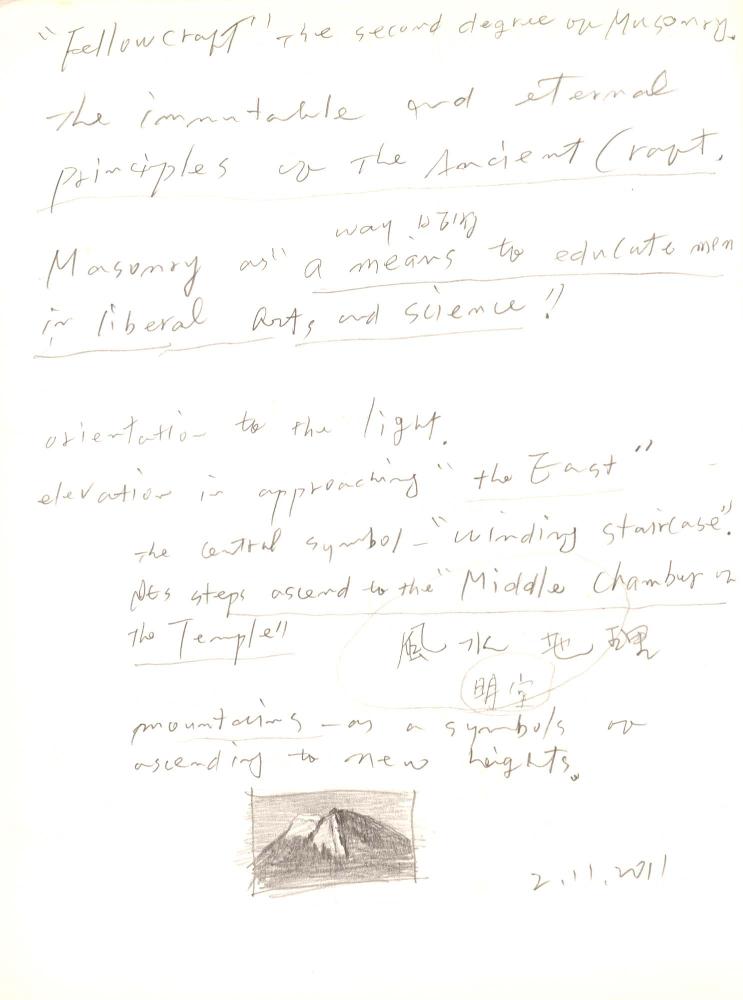 "Fellowcraft" The second degree of Masonry.
The immutable and eternal
principles of The Ancient Craft.
way
Masonry as "a means to educate men
in liberal arts and science"
orientation to the light.
elevation in approaching "the East"
The central symbol - "winding staircase".
Its steps ascend to the "Middle Chamber of
the Temple"
風水地理
明
mountains - as a symbols of
ascending to new heights.
2.11.2011